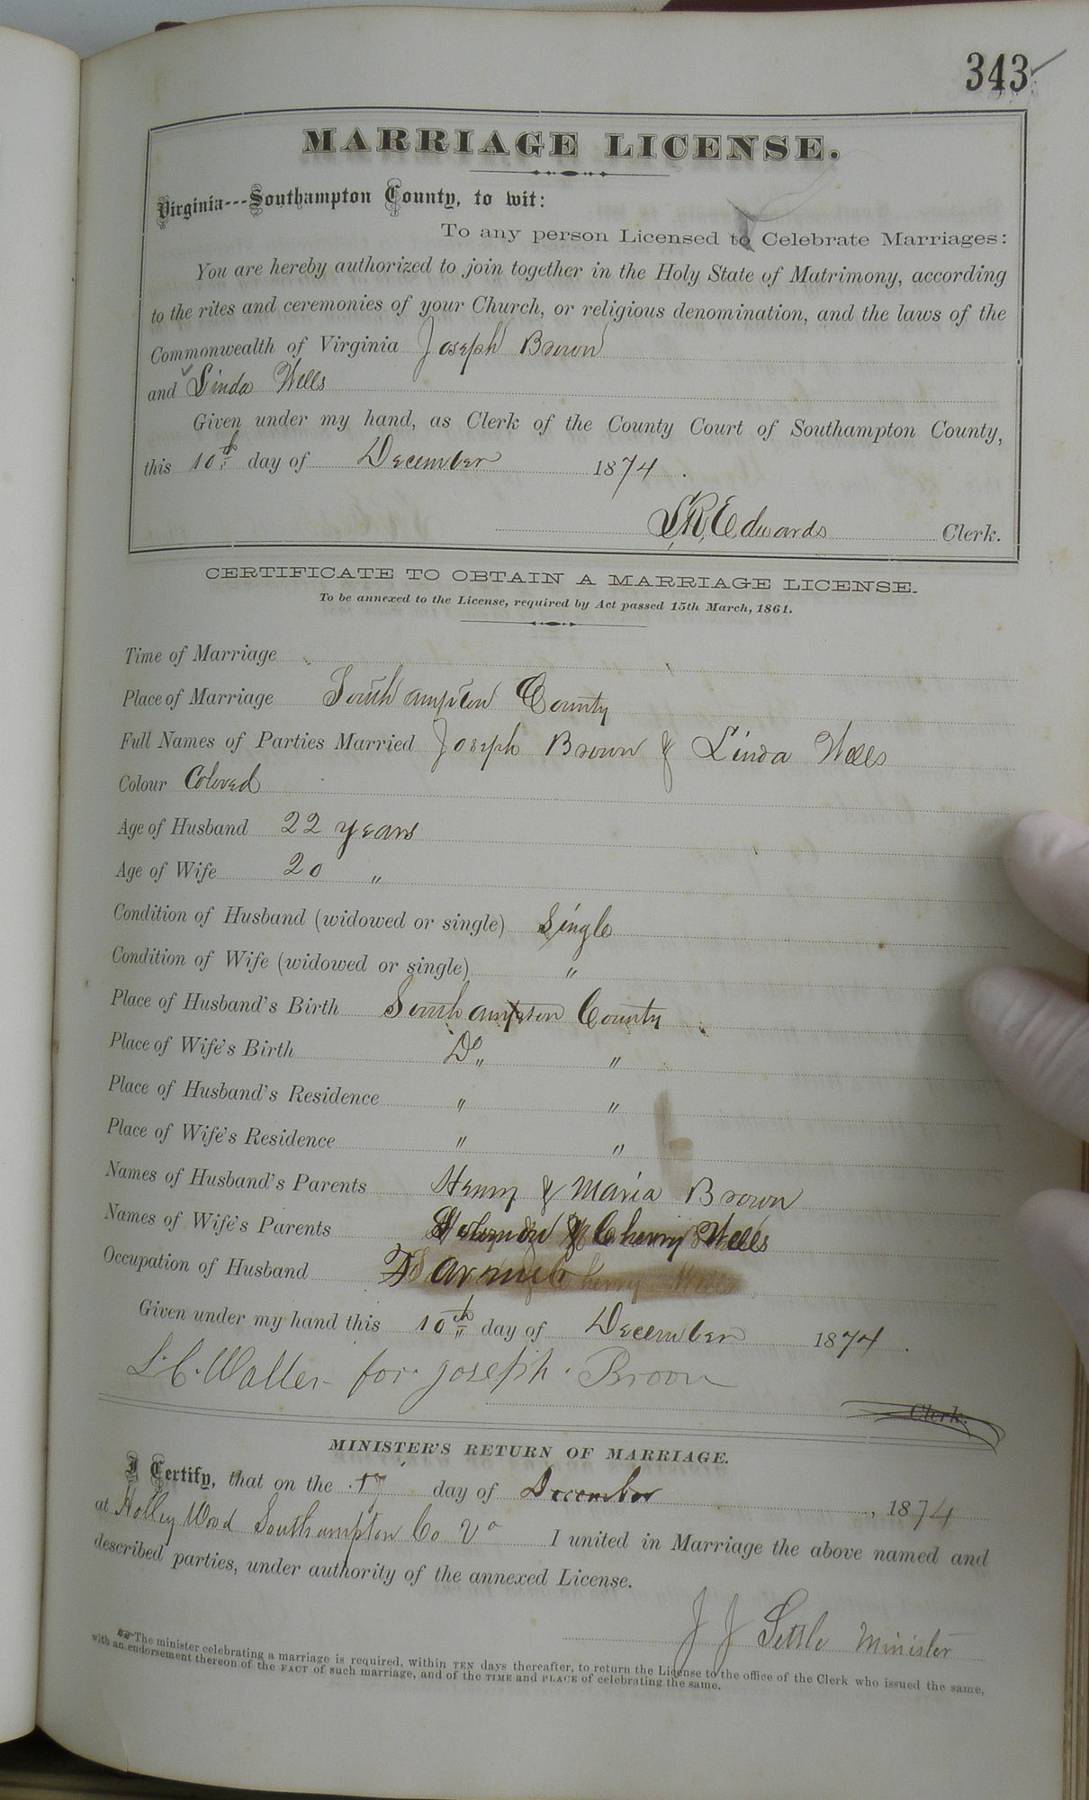 343
MARRIAGE LICENSE.
Virginia---Southampton County, to wit:
To any person Licensed to Celebrate Marriages:
You are hereby authorized to join together in the Holy State of Matrimony, according
to the rites and ceremonies of your Church, or religious denomination, and the laws of the
Commonwealth of Virginia Joseph Brown
and Linda Wells
Given under my hand, as Clerk of the County Court of Southampton County,
this 10th day of December 1874.
L.R. Edwards Clerk.
CERTIFICATE TO OBTAIN A MARRIAGE LICENSE.
To be annexed to the License, required by Act passed 15th March, 1861.
Time of Marriage
Place of Marriage Southampton County
Full Names of Parties Married Joseph Brown & Linda Wells
Colour Colored
Age of Husband 22 years
Age of Wife 20 "
Condition of Husband (widowed or single) Single
Condition of Wife (widowed or single) "
Place of Husband's Birth Southampton County
Place of Wife's Birth Do " "
Place of Husband's Residence " "
Place of Wife's Residence " "
Names of Husband's Parents Henry & Maria Brown
Names of Wife's Parents & Cherry Wells
Occupation of Husband Farmer
Given under my hand this 10th day of December 1874.
L.C. Waller for Joseph Broon
Clerk.
MINISTER'S RETURN OF MARRIAGE.
I Certify, that on the 17 day of December, 1874
at Holley Wood Southampton Co Va I united in Marriage the above named and
described parties, under authority of the annexed License.
J J Settle Minister
The minister celebrating a marriage is required, within TEN days thereafter, to return the License to the office of the Clerk who issued the same,
with an endorsement thereon of the FACT of such marriage, and of the TIME and PLACE of celebrating the same.